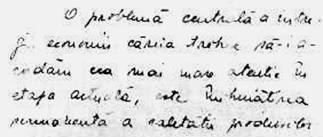 O problemă centrală a între-
gii economii căreia trebuie să-i a-
cordăm cea mai mare atenție în
etapa actuală, este îmbunătățirea
permanentă a calității produselor